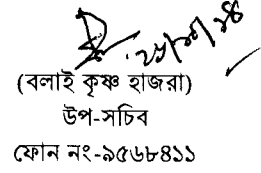 (বলাই কৃষ্ণ হাজরা)
উপ-সচিব
ফোন নং-৯৫৬৮৪১১